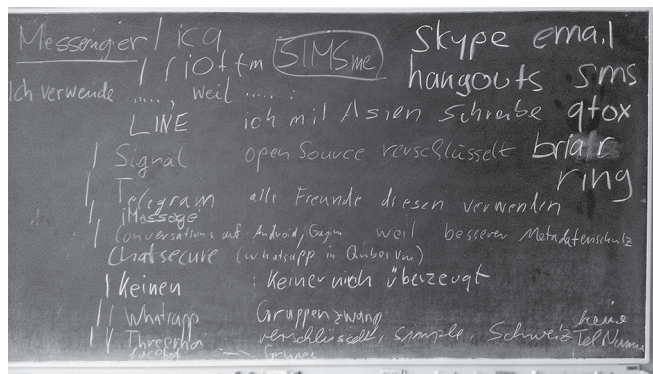 Messenger / icq SIMSme skype email
/ riot fm hangouts sms
Ich verwende ....., weil ..... :
LINE ich mit Asien schreibe qtox
Signal open Source verschlüsselt briar
ring
Telegram alle Freunde diesen verwenden
iMessage
Conversations auf Android, Gajim weil besserer Metadatenschutz
Chatsecure (whatsapp in Qubes vm)
Keinen : Keiner mich überzeugt
Whatsapp Gruppenzwang
Threema verschlüsselt, simple, Schweiz keine
Tel Numm